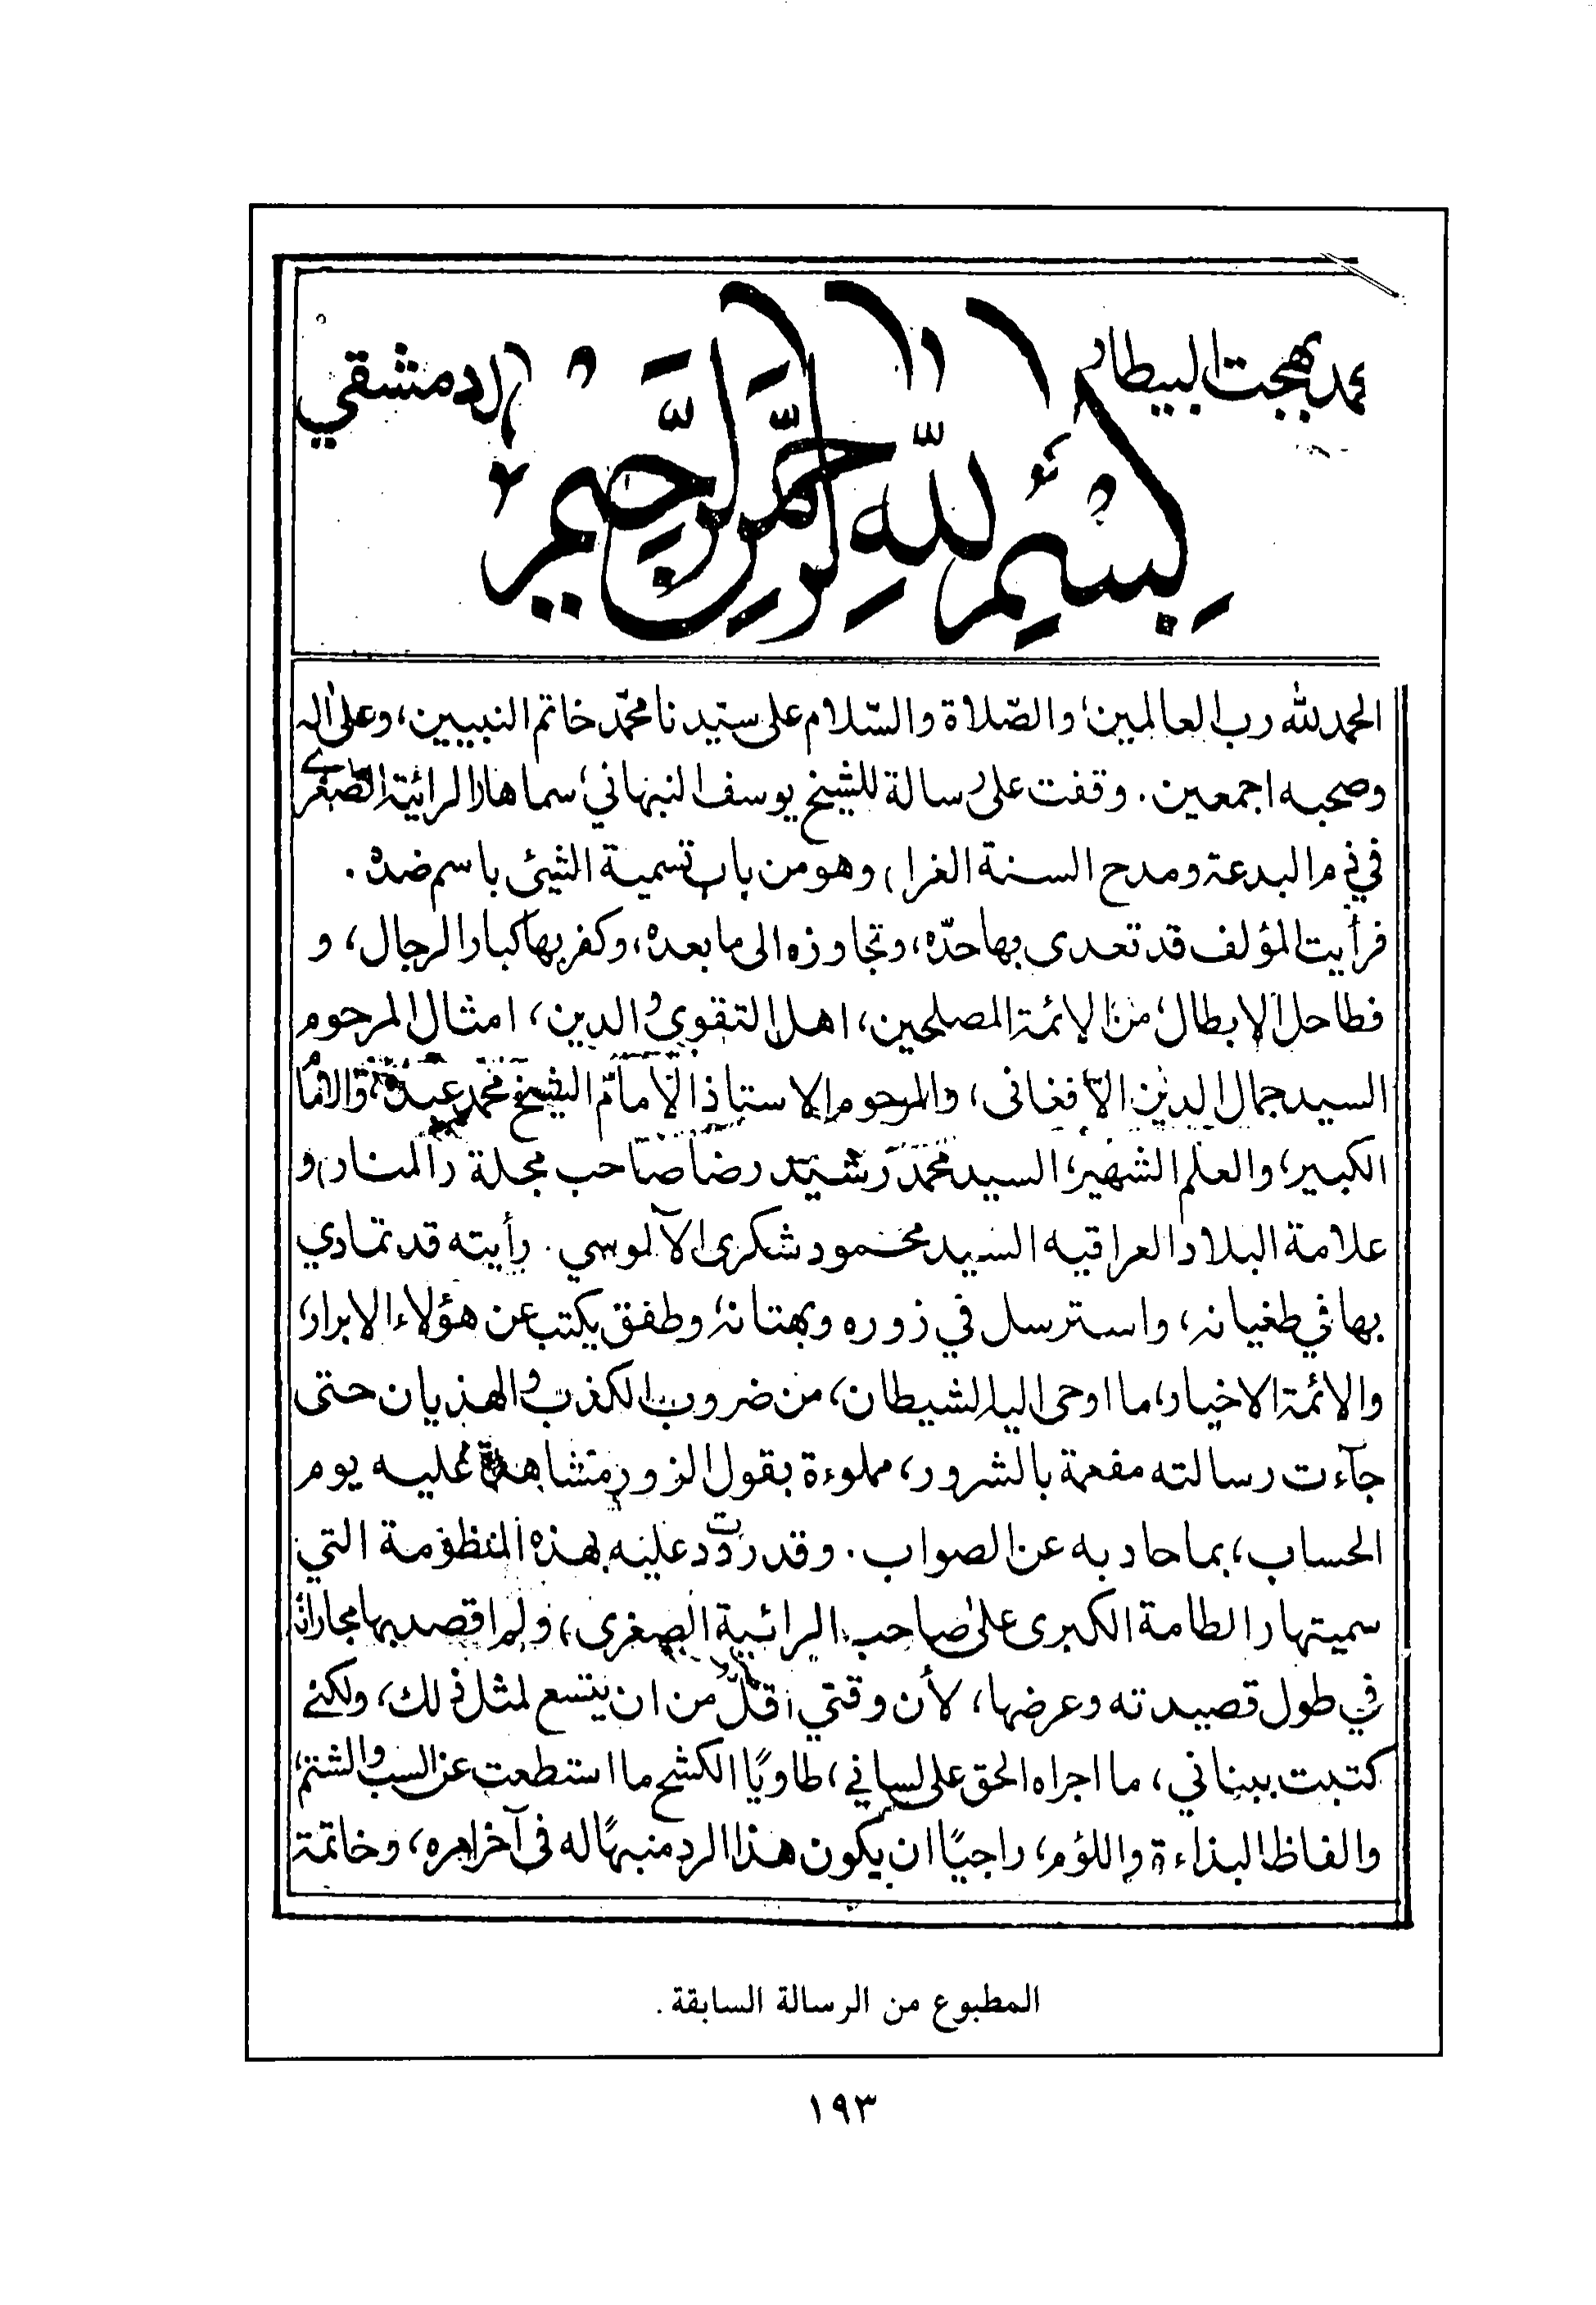 محمد بهجت البيطار
الدمشقي
بسم الله الرحمن الرحيم
الحمد لله رب العالمين، والصّلاة والسّلام على سيّدنا محمّد خاتم النبيين، وعلى اله
وصحبه اجمعين. وقفت على رسالة للشيخ يوسف النبهاني، سماها (الرائية الصغرى
في ذم البدعة ومدح السنة الغرا) وهو من باب تسمية الشيئ باسم ضده.
فرأيت المؤلف قد تعدى بها حدّه، وتجاوزه الى ما بعده، وكفر بها كبار الرجال، و
فطاحل الابطال، من الائمة المصلحين، اهل التقوى والدين، امثال المرحوم
السيد جمال الدين الأفغانى، والمرحوم الاستاذ الأمام الشيخ محمد عبده، والامام
الكبير، والعلم الشهير، السيد محمد رشيد رضا صاحب مجلة (المنار) و
علامة البلاد العراقيه السيد محمود شكرى الآلوسي. رأيته قد تمادي
بها في طغيانه، واسترسل في زوره وبهتانه، وطفق يكتب عن هؤلاء الابرار،
والائمة الاخيار، ما اوحى اليه الشيطان، من ضروب الكذب والهذيان حتى
جآءت رسالته مفعمة بالشرور، مملوءة بقول الزور، شاهدة عليه يوم
الحساب، بما حاد به عن الصواب. وقد رددت عليه بهذه المنظومة التي
سميتها (الطامة الكبرى على صاحب الرائية الصغرى)، ولم اقصد بها مجاراته
في طول قصيدته وعرضها، لأن وقتي أقلّ من ان يتسع لمثل ذلك، ولكني
كتبت ببناني، ما اجراه الحق على لساني، طاويًا الكشح ما استطعت عن السب والشتم،
والفاظ البذاءة واللؤم، راجيًا ان يكون هذا الرد منبهًا له فى آخر امره، وخاتمة
المطبوع من الرسالة السابقة.
١٩٣